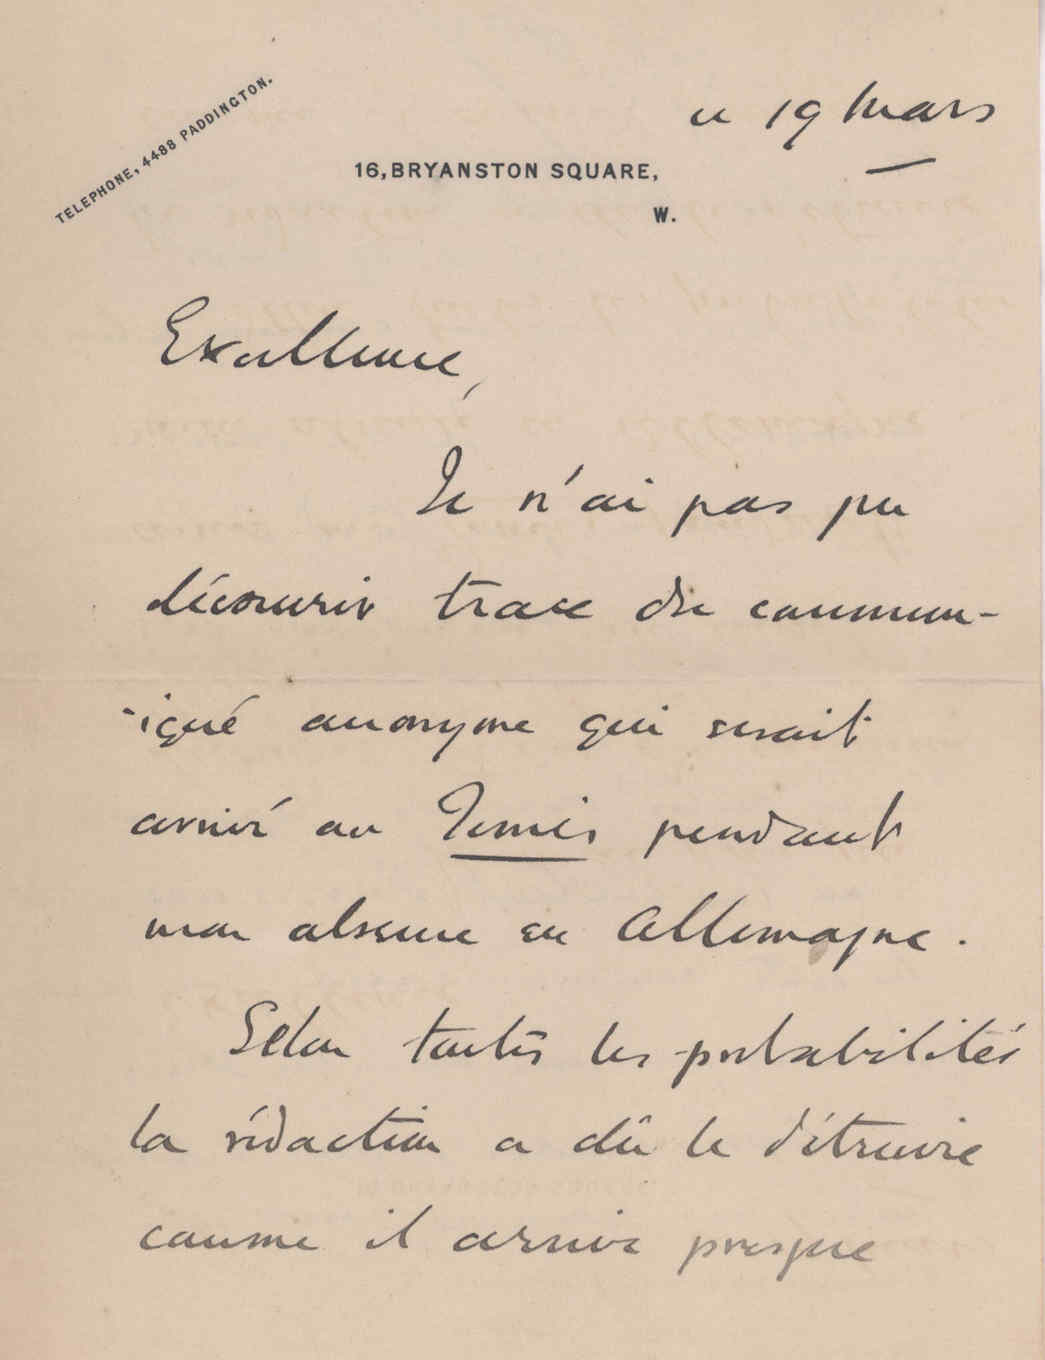 TELEPHONE, 4488 PADDINGTON.
ce 19 Mars
16, BRYANSTON SQUARE,
W.
Excellence,
Je n'ai pas pu
découvrir trace du commun-
-iqué anonyme qui serait
arrivé au Temps pendant
mon absence en Allemagne.
Selon toutes les probabilités
la rédaction a dû le détruire
comme il arrive presque